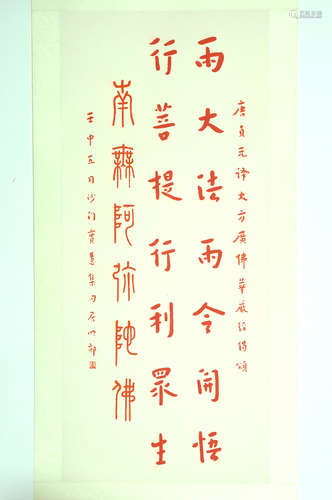 唐貞元譯大方廣佛華嚴經偈頌
雨大法雨令開悟
行菩提行利眾生
南無阿弥陀佛
壬申五月沙门慧集句居